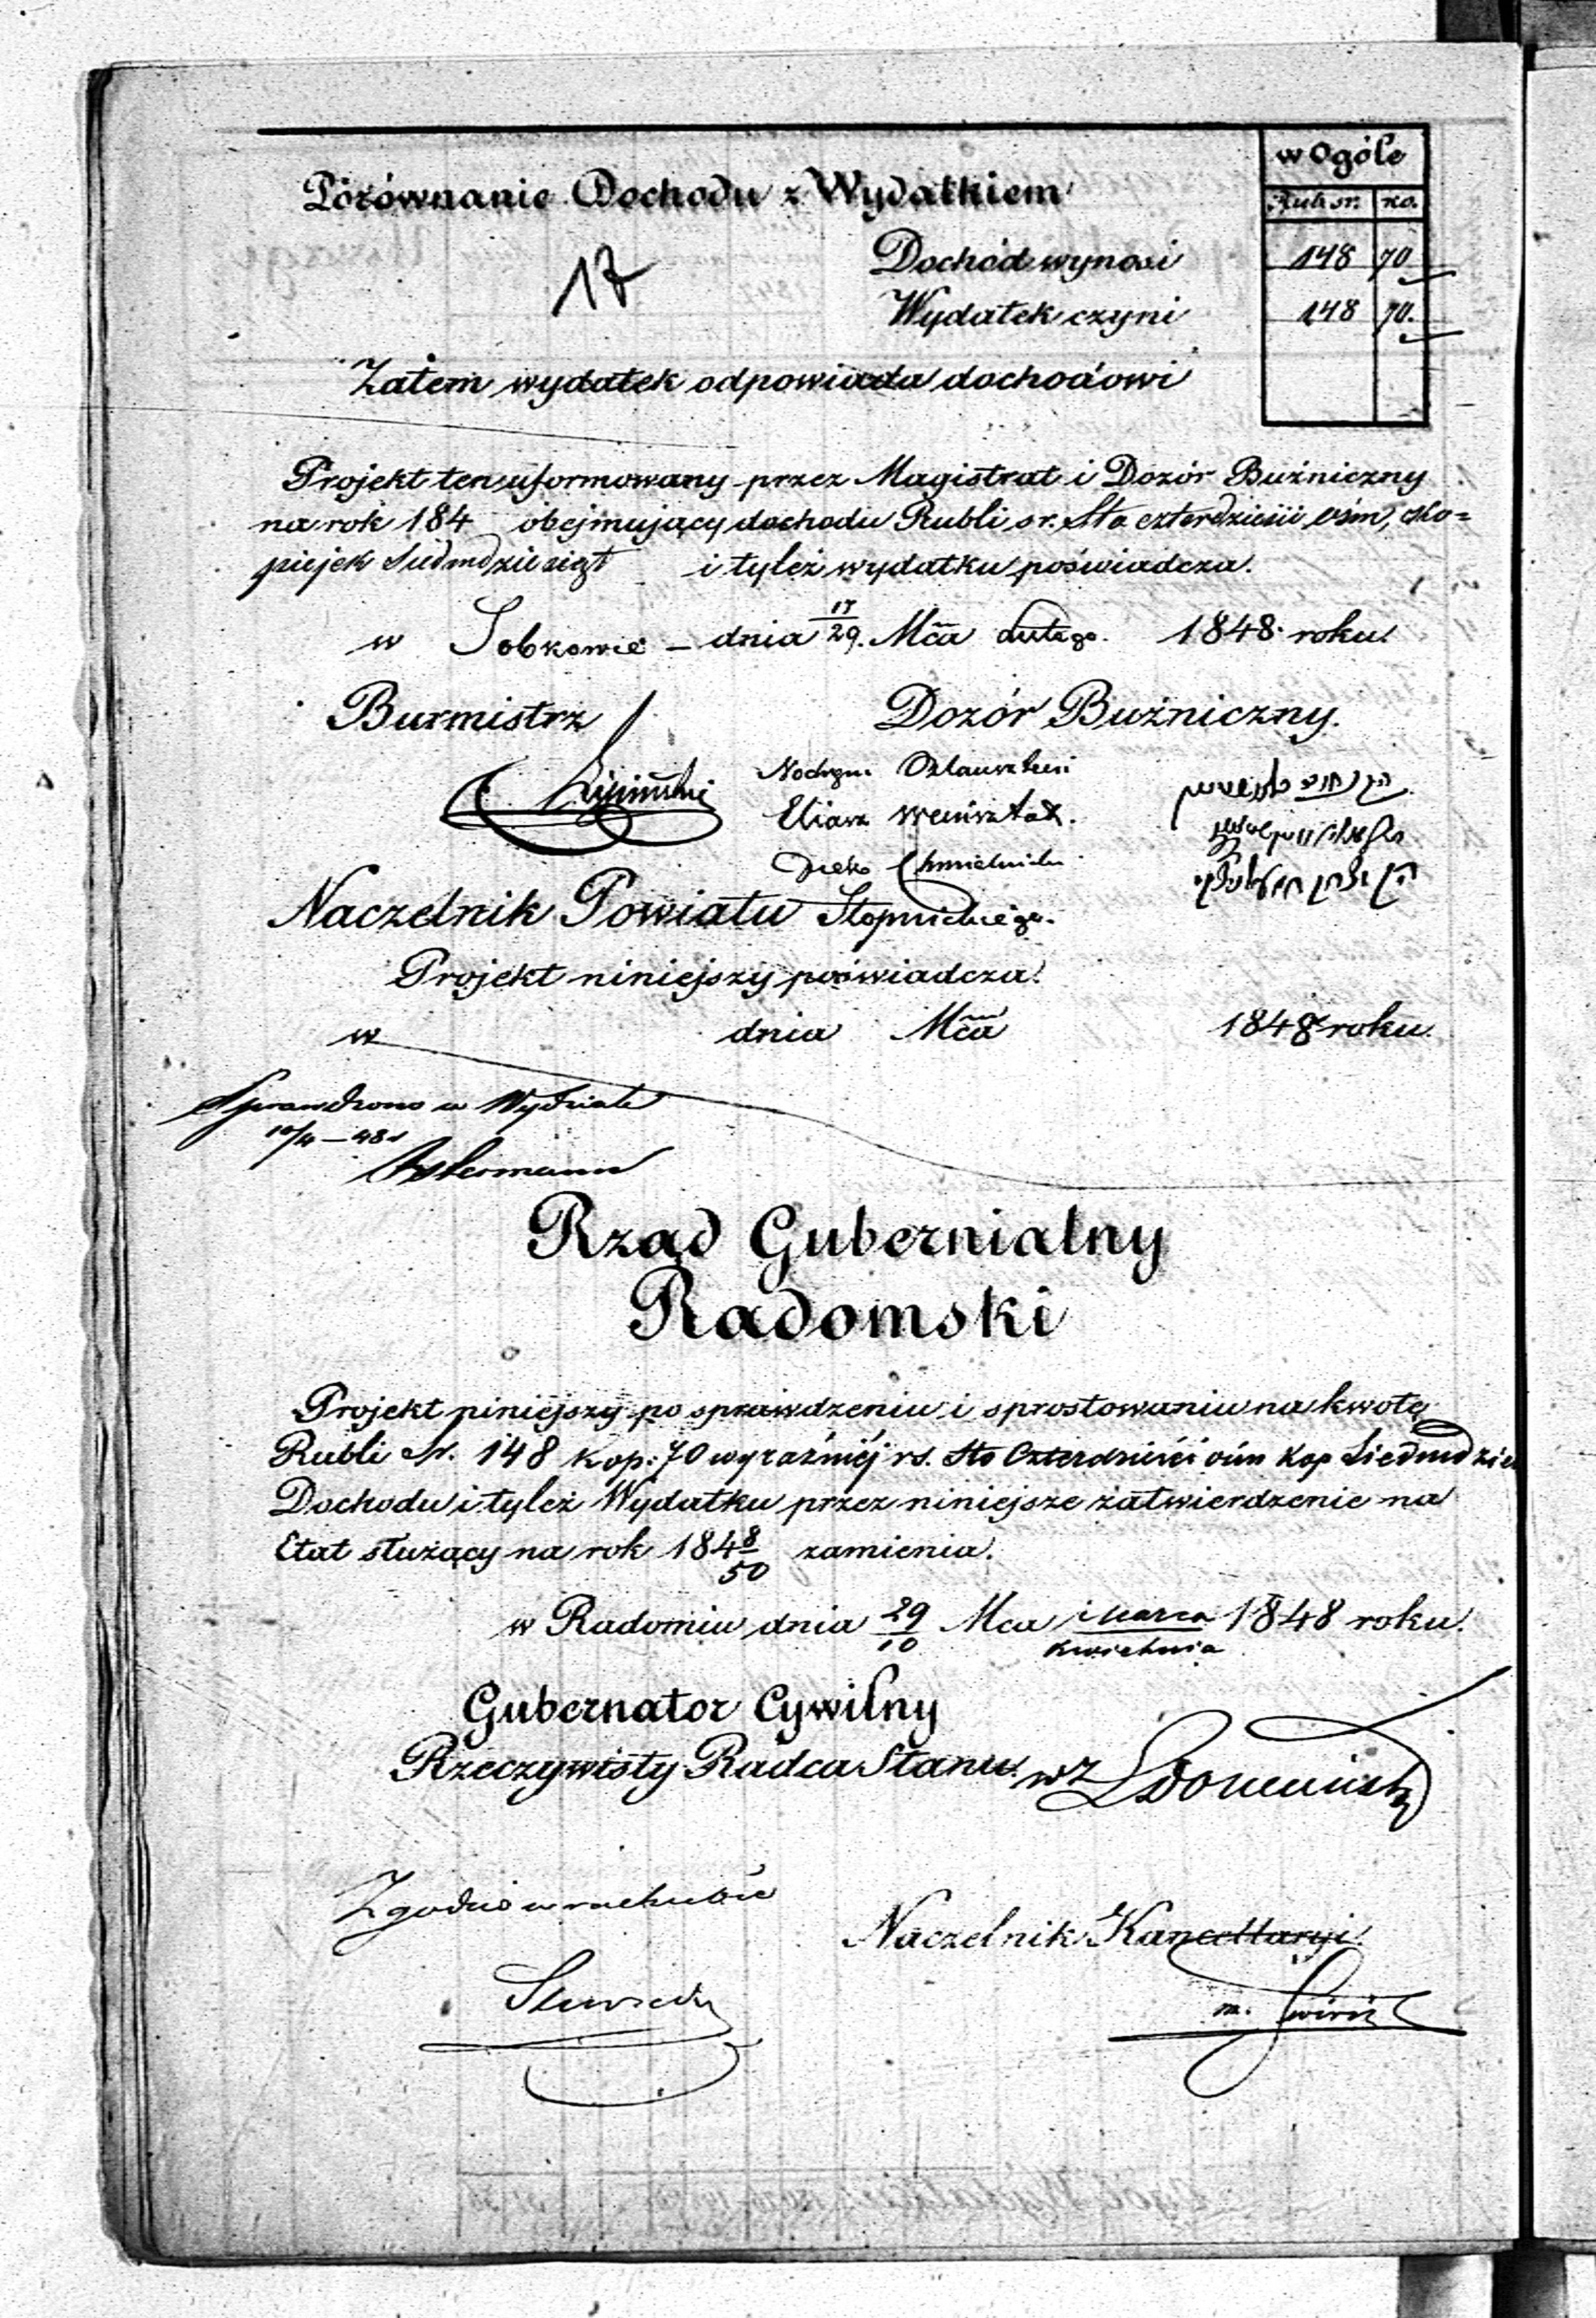 w Ogóle
Porównanie Dochodu z Wydatkiem
Rub sr. ko.
Dochód wynosi 148 70
17
Wydatek czyni 148 70.
Zatem wydatek odpowiada dochodowi
Projekt ten uformowany przez Magistrat i Dozór Bużniczny
na rok 184 obejmujący dochodu Rubli sr. Sto czterdzieści ośm, ko=
piejek Siedmdziesiąt i tyleż wydatku poświadcza.
w Sobkowie – dnia 17/29. Mca Lutego. 1848 roku.
Burmistrz Dozór Bużniczny.
Eliasz
Chmielnicki
Naczelnik Powiatu Stopnickiego.
Projekt niniejszy poświadcza.
w dnia Mca 1848 roku.
Sprawdzono w Wydziale
10/4 – 48
Rząd Gubernialny
Radomski
Projekt niniejszy po sprawdzeniu i sprostowaniu na kwotę
Rubli sr. 148 kop: 70 wyraźniéj rs. Sto Czterdzieści ośm kop Siedmdzies
Dochodu i tyleż Wydatku przez niniejsze zatwierdzenie na
Etat służący na rok 1848/50 zamienia.
w Radomiu dnia 29/10 Mca Marca/Kwietnia 1848 roku.
Gubernator Cywilny
Rzeczywisty Radca Stanu. wz
Zgodno w rachubie
Naczelnik Kancellaryi